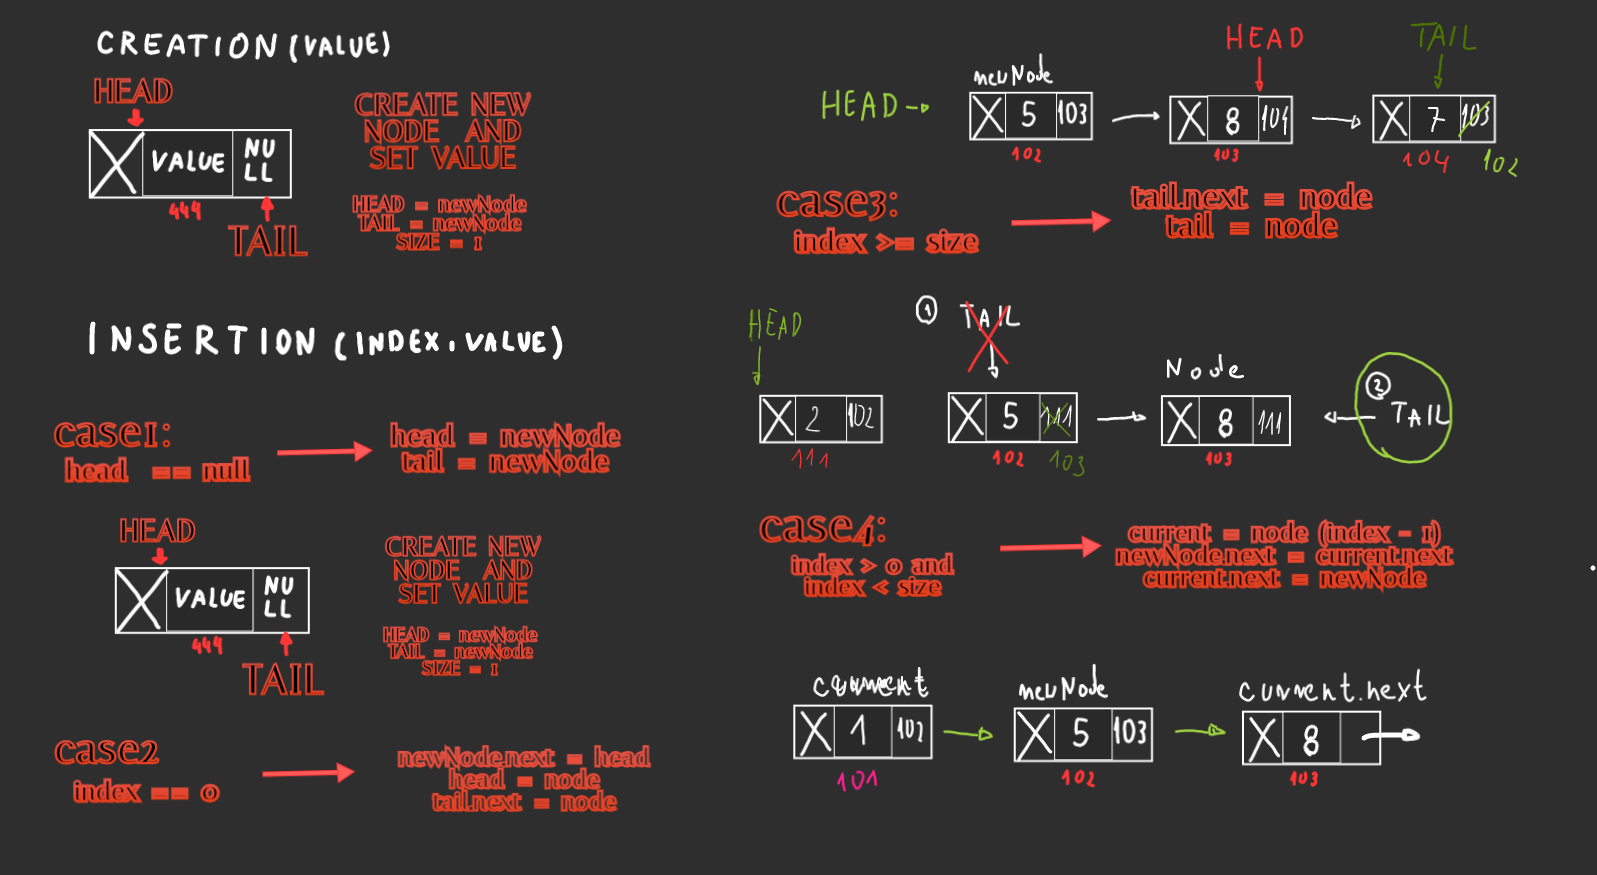 CREATION (VALUE)
HEAD
VALUE
NU
LL
444
TAIL
CREATE NEW
NODE AND
SET VALUE
HEAD = newNode
TAIL = newNode
SIZE = 1
INSERTION (INDEX, VALUE)
case1:
head == null
head = newNode
tail = newNode
HEAD
VALUE
NU
LL
444
TAIL
CREATE NEW
NODE AND
SET VALUE
HEAD = newNode
TAIL = newNode
SIZE = 1
case2
index == 0
newNode.next = head
head = node
tail.next = node
HEAD
TAIL
newNode
HEAD
X 5 103
X 8 104
X 7 103
102
103
104
102
case3:
index >= size
tail.next = node
tail = node
HEAD
1 TAIL
Node
2
TAIL
X 2 102
X 5 111
X 8 111
111
102
103
103
case4:
index > 0 and
index < size
current = node (index - 1)
newNode.next = current.next
current.next = newNode
current
newNode
current.next
X 1 102
X 5 103
X 8
101
102
103